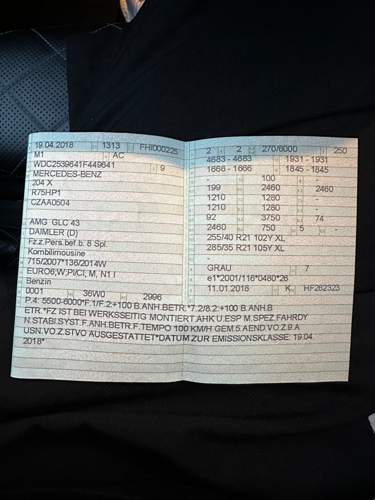 19.04.2018 1313 FHI000225
M1 AC
WDC2539641F449641 9
MERCEDES-BENZ
204 X
R75HP1
CZAA0504
AMG GLC 43
DAIMLER (D)
Fz.z.Pers.bef.b. 8 Spl.
Kombilimousine
715/2007*136/2014W
EURO6;W;PI/CI; M, N1 I
Benzin
0001 36W0 2996
2 2 270/6000 250
4683 - 4683 1931 - 1931
1666 - 1666 1845 - 1845
- 100 -
199 2460 2460
1210 1280 -
1210 1280 -
92 3750 74
2460 750 5 -
255/40 R21 102Y XL
285/35 R21 105Y XL
-
GRAU 7
e1*2001/116*0480*26
11.01.2018 K HF262323
P.4: 5500-6000*F.1/F.2:+100 B.ANH.BETR.*7.2/8.2:+100 B.ANH.B
ETR.*FZ IST BEI WERKSSEITIG MONTIERT.AHK U.ESP M.SPEZ.FAHRDY
N.STABI.SYST.F.ANH.BETR.F.TEMPO 100 KM/H GEM.5.AEND.VO.Z.9.A
USN.VO.Z.STVO AUSGESTATTET*DATUM ZUR EMISSIONSKLASSE: 19.04.
2018*